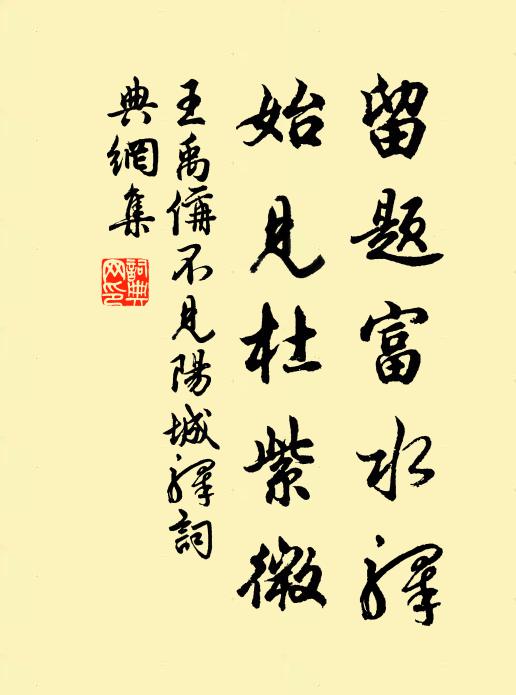 留題富水驛
始見杜紫微
王禹偁不見陽城驛詞
典網集
詞典
网印